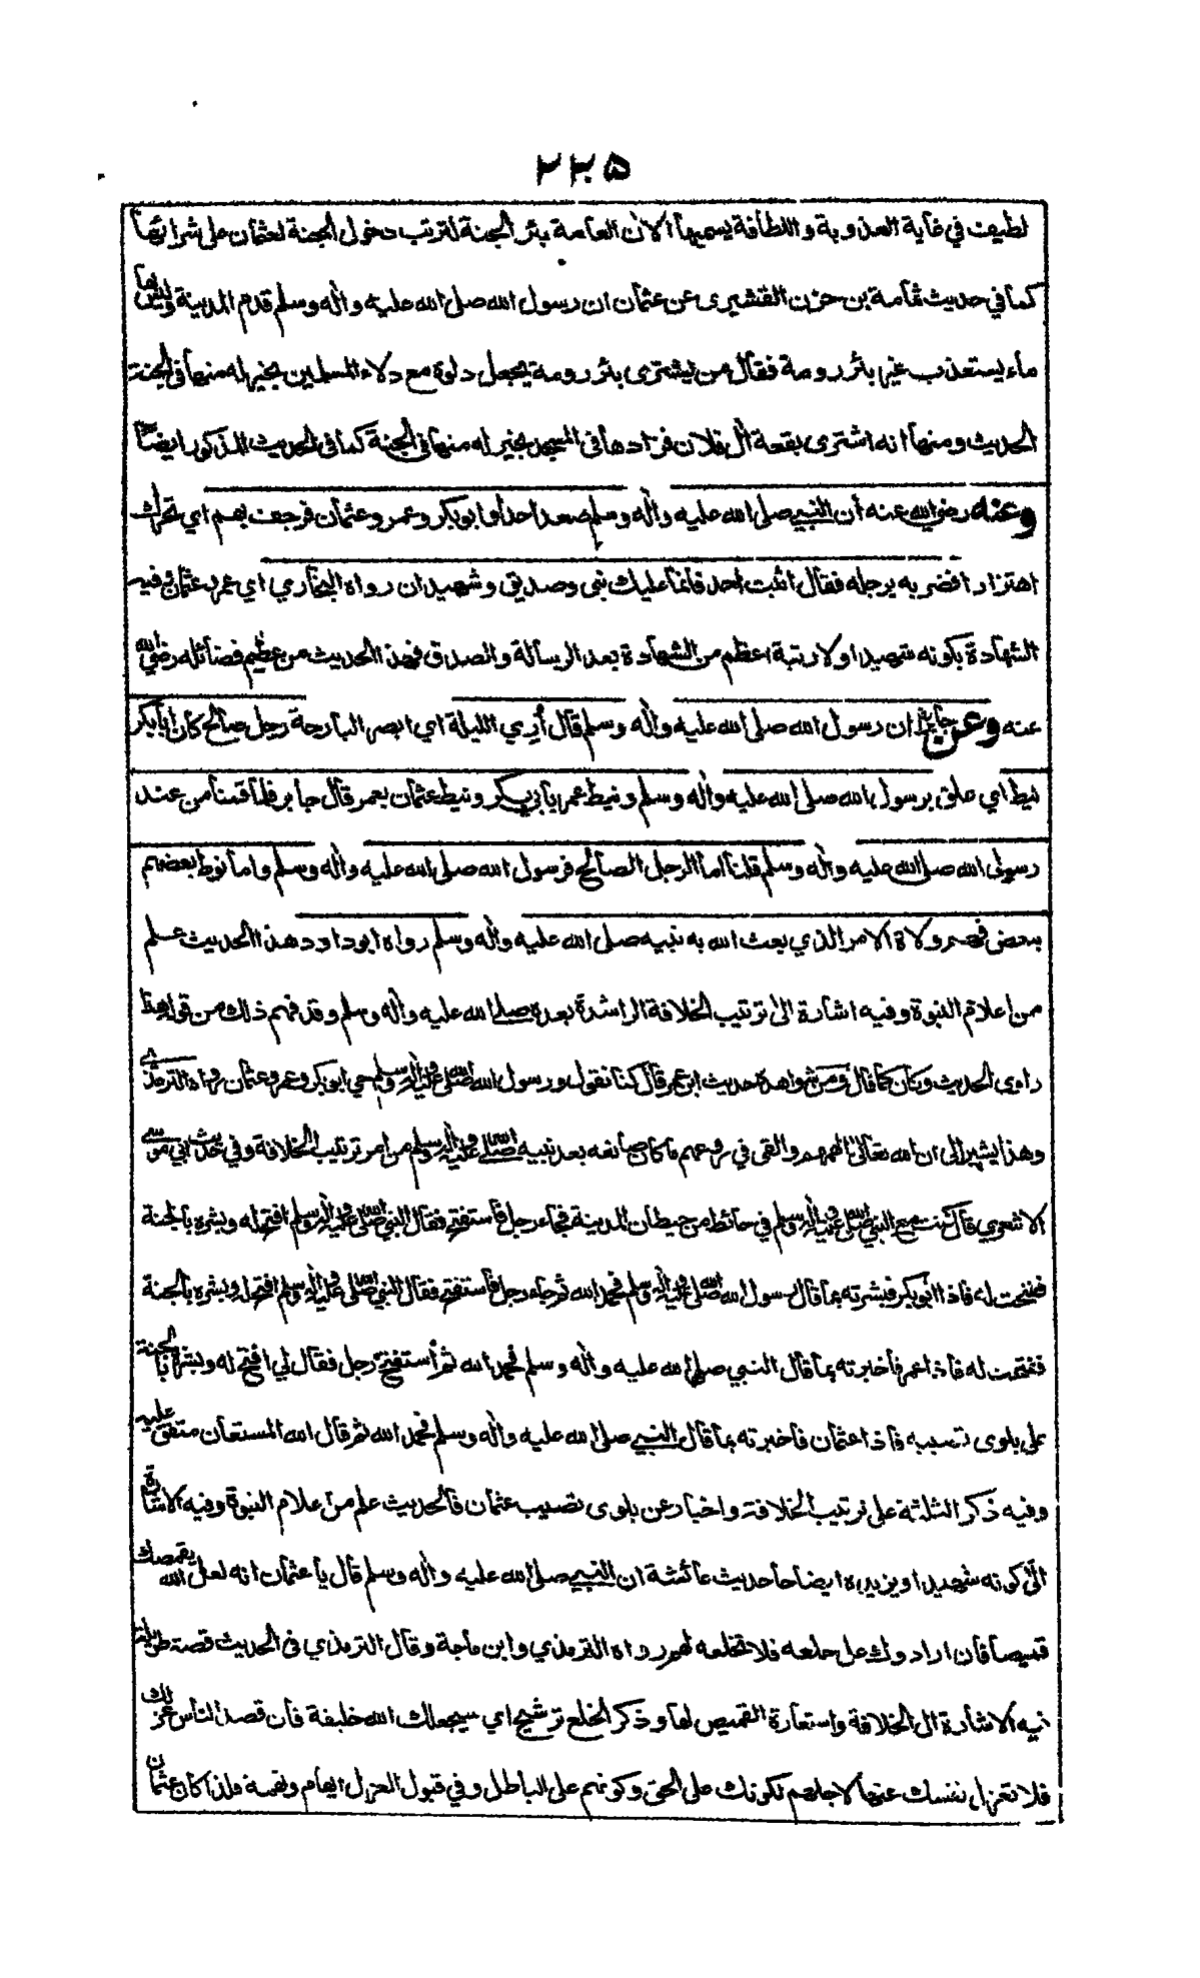 ٢٢٥
لطيف في غاية العذوبة واللطافة يسميها الان العامة بئر الجنة لترتب دخول الجنة لعثمان على شرائها
كما في حديث ثمامة بن حزن القشيرى عن عثمان ان رسول الله صلى الله عليه واٰله وسلم قدم المدينة وليس بها
ماء يستعذب غير بئر رومة فقال من يشترى بئر رومة يجعل دلوة مع دلاء المسلمين بخير له منها في الجنة
الحديث ومنها انه اشترى بقعة اٰل فلان فزادها في المسجد بخير له منها في الجنة كما في الحديث المذكور ايضاً
وعنه رضي الله عنه أن النبي صلى الله عليه واٰله وسلم صعد احداً وابوبكر وعمر وعثمان فرجف بهم اي تحرك
اهتزازا فضربه برجله فقال اثبت احد فانما عليك نبى وصديق وشهيدان رواه البخاري اي عمر وعثمان فيه
الشهادة بكونه شهيدا ولا رتبة اعظم من الشهادة بعد الرسالة والصدق فهذا الحديث من عظيم فضائله رضي الله
عنه وعن جابر ان رسول الله صلى الله عليه واٰله وسلم قال أري الليلة اي ابصر البارحة رجل صالح كأن ابابكر
نيط اي علق برسول الله صلى الله عليه واٰله وسلم ونيط عمر بابي بكر ونيط عثمان بعمر قال جابر فلما قمنا من عند
رسول الله صلى الله عليه واٰله وسلم قلنا اما الرجل الصالح فرسول الله صلى الله عليه واٰله وسلم واما نوط بعضهم
ببعض فهم ولاة الامر الذي بعث الله به نبيه صلى الله عليه واٰله وسلم رواه ابوداود هذا الحديث علم
من اعلام النبوة وفيه اشارة الى ترتيب الخلافة الراشدة بعده صلى الله عليه واٰله وسلم وقد فهم ذلك من قواه هذا
راوى الحديث وكان كما قال ومن شواهده حديث ابن عمر قال كنا نقول ورسول الله صلى الله عليه واٰله وسلم حي ابوبكر وعمر وعثمان رواه الترمذي
وهذا يشير الى ان الله تعالى الهمهم والقى في روعهم ما كان صانعه بعد نبيه صلى الله عليه واٰله وسلم من امر ترتيب الخلافة وفي حديث ابي موسى
الاشعري قال كنت مع النبي صلى الله عليه واٰله وسلم في حائط من حيطان المدينة فجاء رجل فاستفتح فقال النبي صلى الله عليه واٰله وسلم افتح له وبشره بالجنة
ففتحت له فاذا ابوبكر فبشرته بما قال رسول الله صلى الله عليه واٰله وسلم فحمد الله ثم جاء رجل فاستفتح فقال النبي صلى الله عليه واٰله وسلم افتح له وبشره بالجنة
ففتحت له فاذا عمر فأخبرته بما قال النبي صلى الله عليه واٰله وسلم فحمد الله ثم استفتح رجل فقال لي افتح له وبشره بالجنة
على بلوى تصيبه فاذا عثمان فاخبرته بما قال النبي صلى الله عليه واٰله وسلم فحمد الله ثم قال الله المستعان متفق عليه
وفيه ذكر الثلثة على ترتيب الخلافة واخبار عن بلوى تصيب عثمان فالحديث علم من اعلام النبوة وفيه الاشارة
الى كونه شهيدا ويزيده ايضاحا حديث عائشة ان النبي صلى الله عليه واٰله وسلم قال يا عثمان انه لعل الله يقمصك
قميصا فان ارادوك على خلعه فلا تخلعه لهم رواه الترمذي وابن ماجة وقال الترمذي في الحديث قصة طويلة
فيه الاشارة الى الخلافة واستعارة القميص لها وذكر الخلع ترشيح اي سيجعلك الله خليفة فان قصد الناس عزلك
فلا تعزل نفسك عنها لاجلهم لكونك على الحق وكونهم على الباطل وفي قبول العزل ايهام وتهمة فلذا كان عثمان